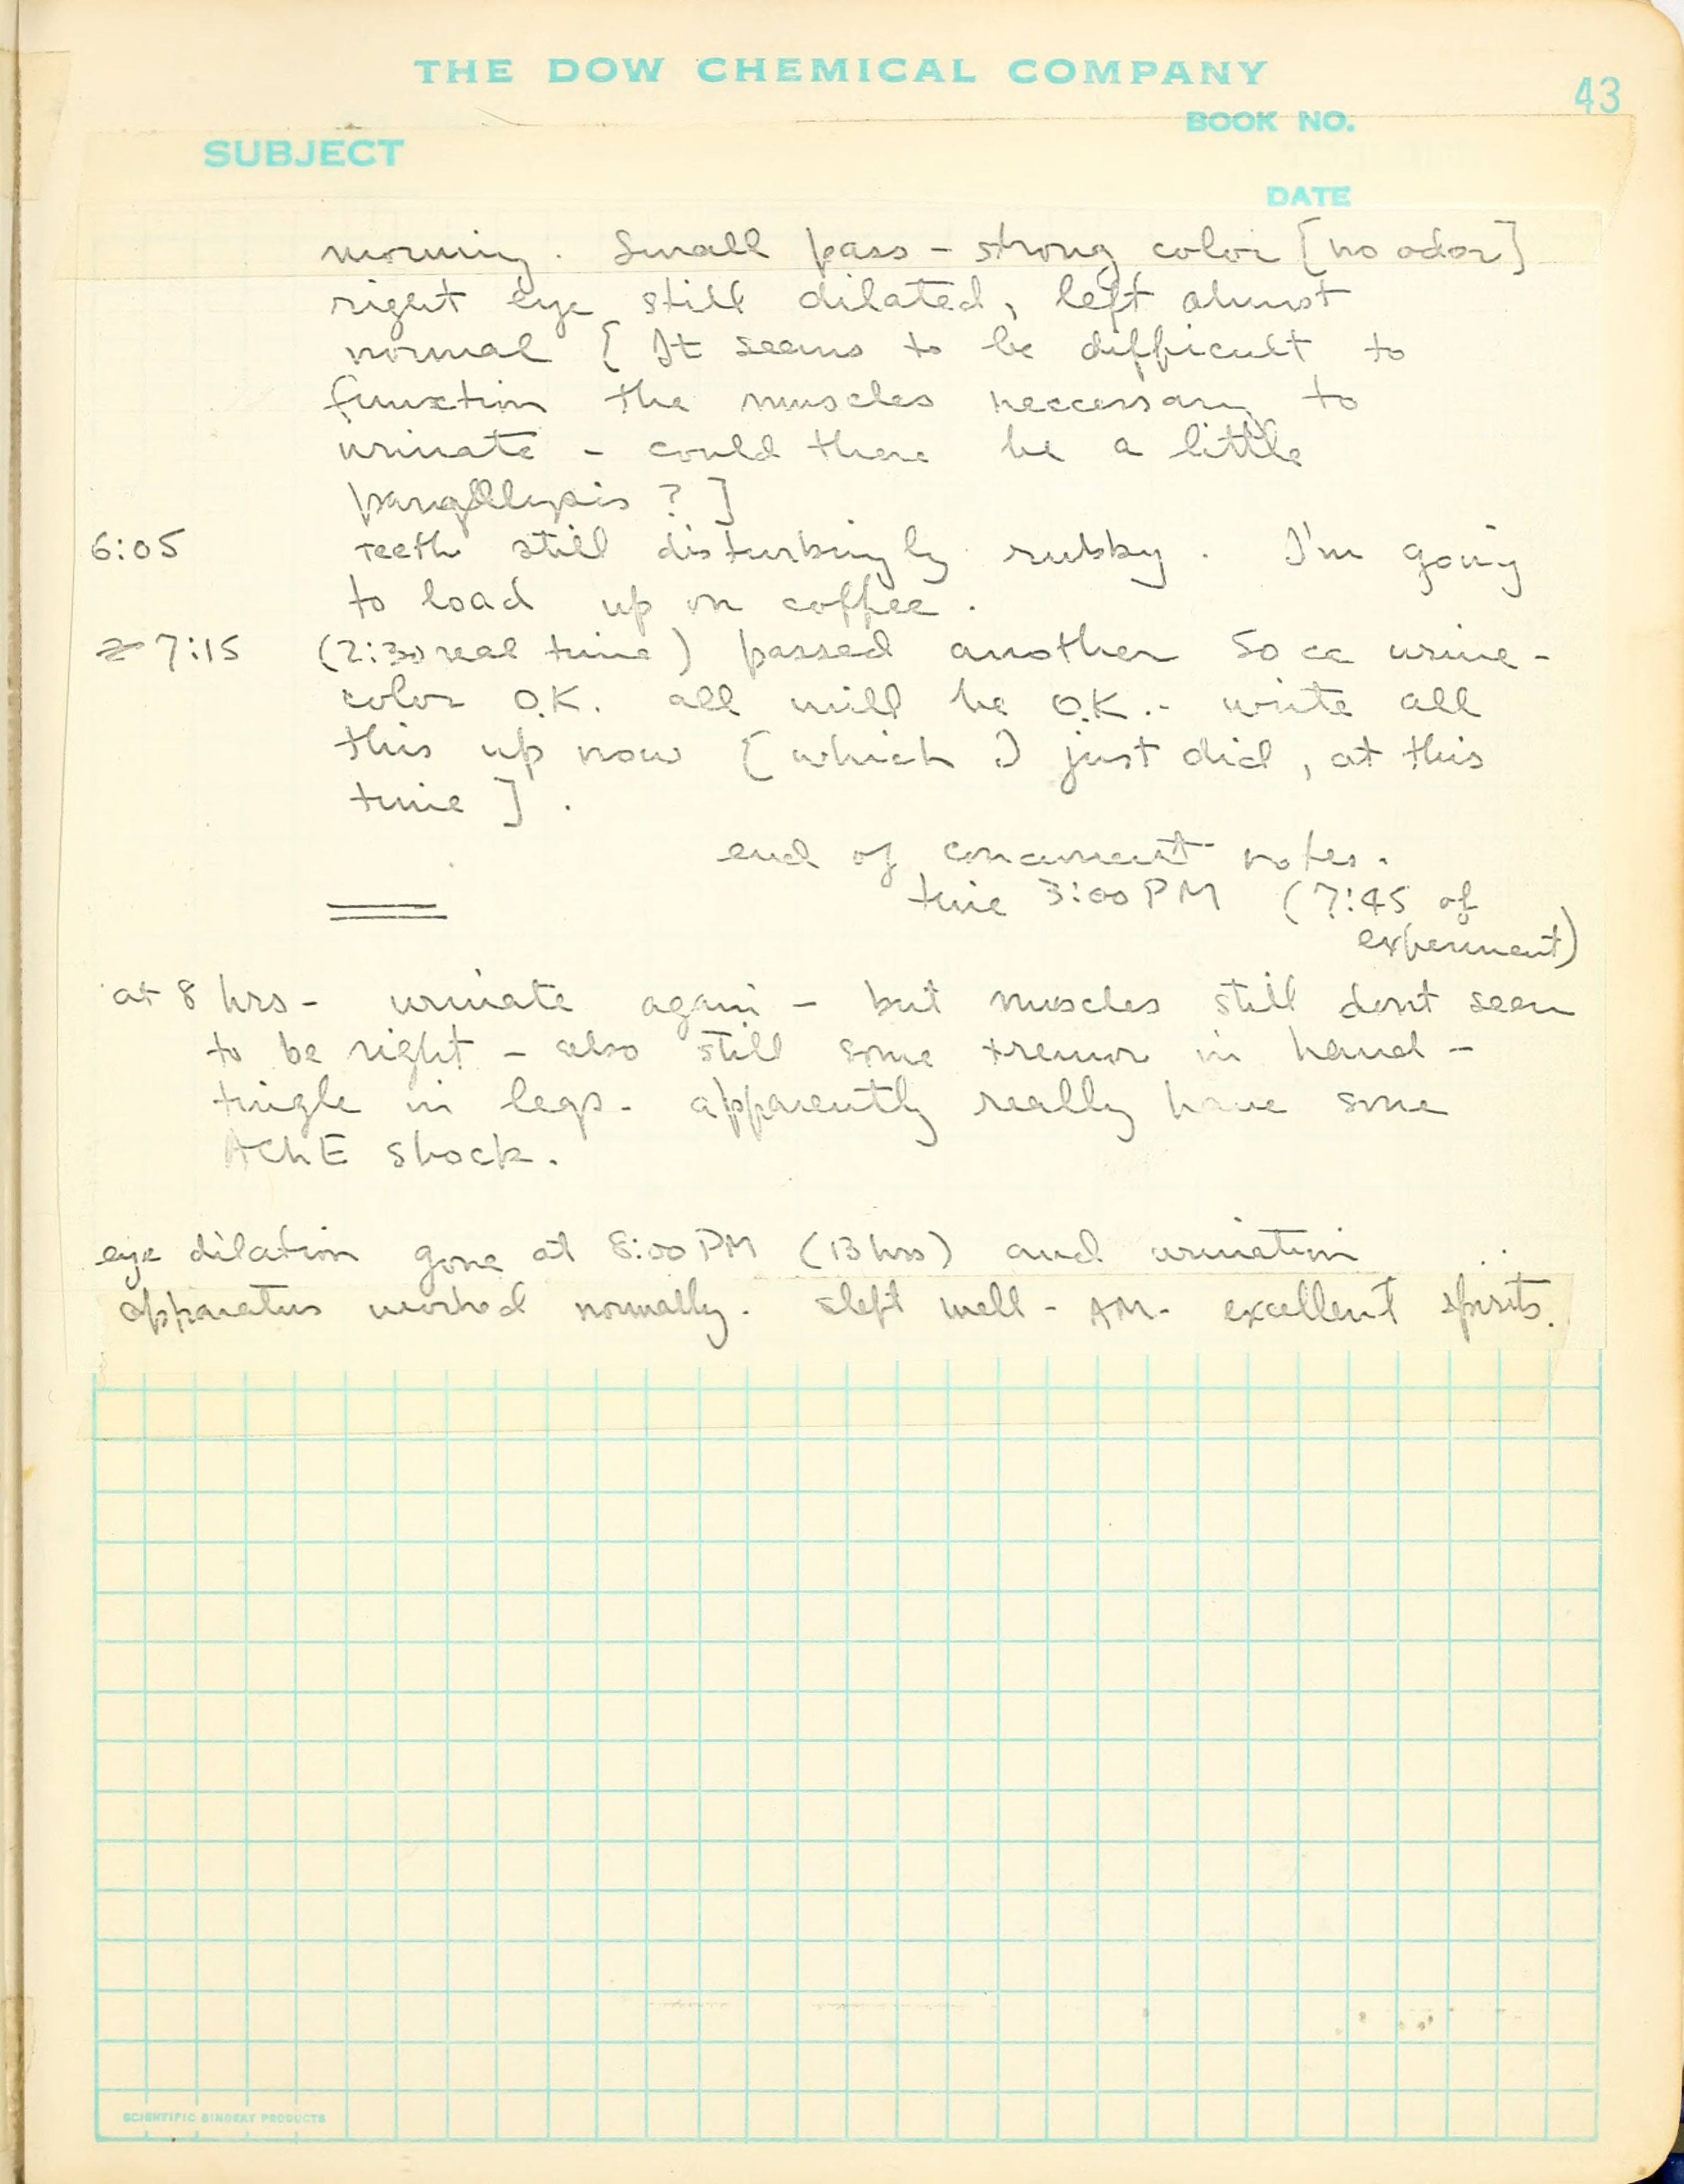 THE DOW CHEMICAL COMPANY
43
BOOK NO.
SUBJECT
DATE
morning. Small pass - strong color [no odor]
right eye still dilated, left almost
normal [ It seems to be difficult to
function the muscles neccessary to
urinate - could there be a little
? ]
6:05 Teeth still disturbingly rubby. I'm going
to load up on coffee.
7:15 (2:30 real time) passed another 50 cc urine -
color O.K. all will be O.K. - write all
this up now [ which I just did, at this
time ] .
end of concurrent notes.
time 3:00 PM (7:45 of
experiment)
at 8 hrs - urinate again - but muscles still dont seem
to be right - also still some tremor in hand -
tingle in legs. apparently really have some
AChE shock.
eye dilation gone at 8:00 PM (13 hrs) and urination
apparatus worked normally. slept well - AM - excellent spirits.
SCIENTIFIC BINDERY PRODUCTS